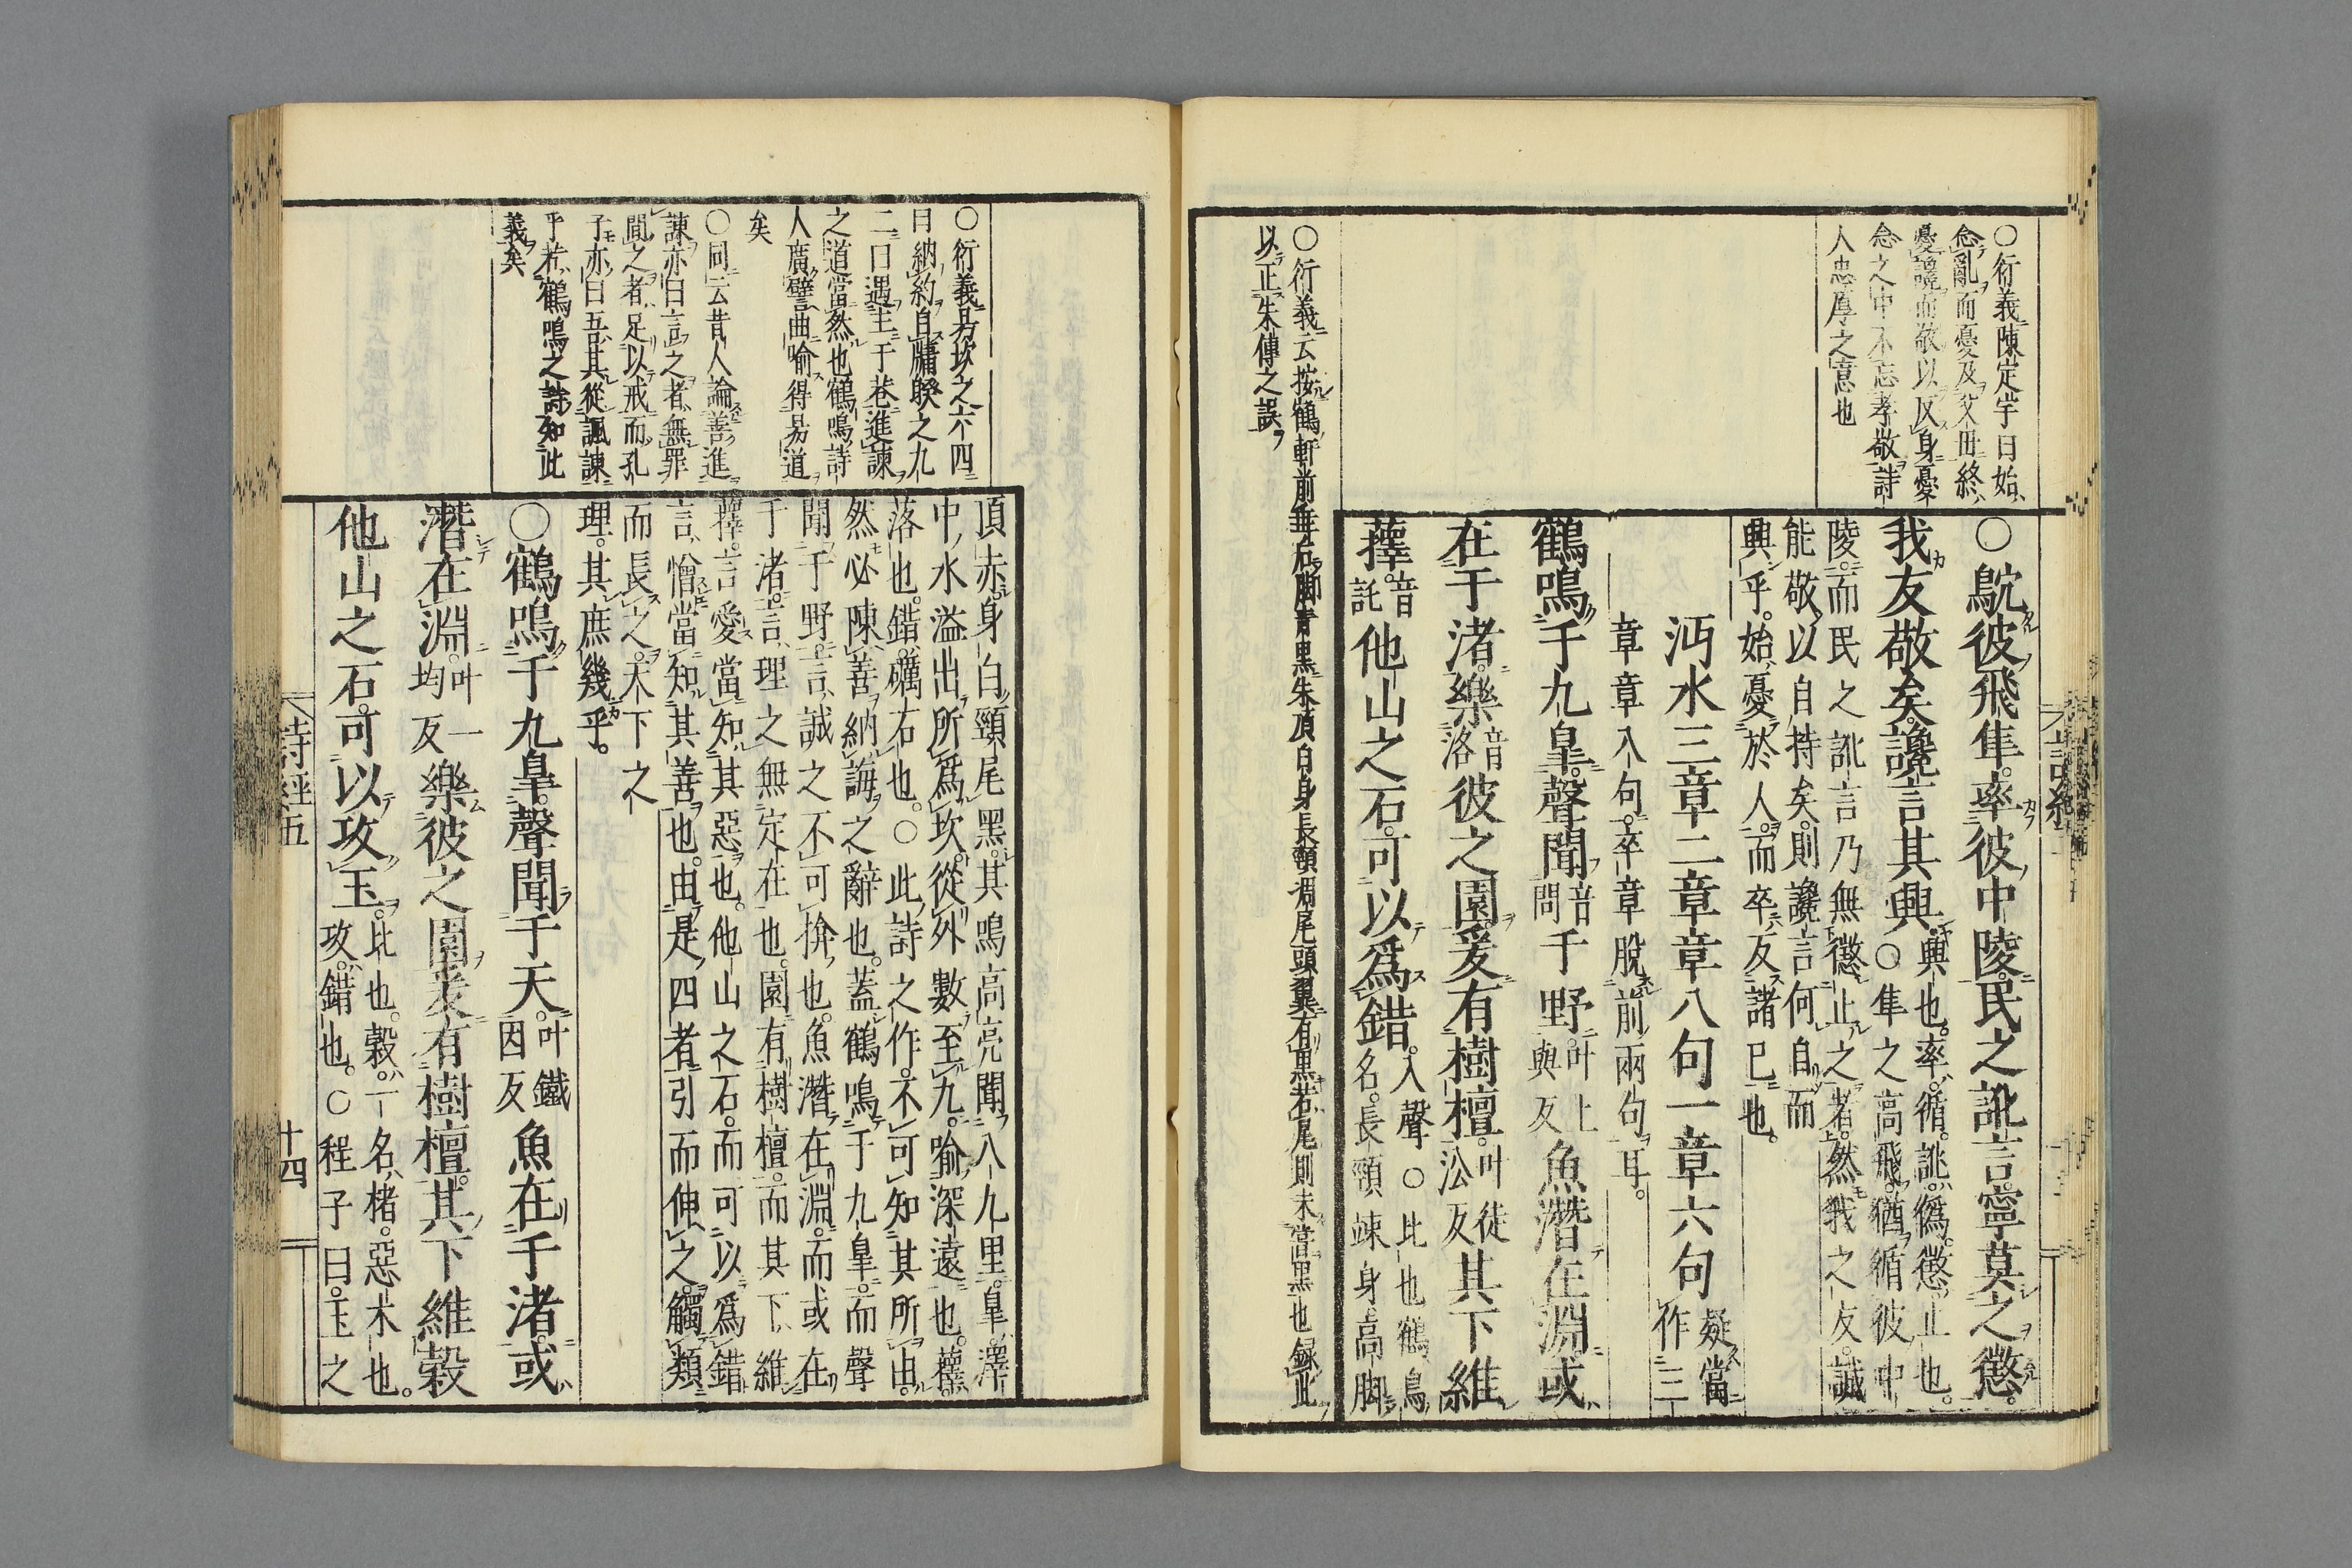 ○衍義陳定宇曰始
念亂而憂及父毋終
憂讒而敬以反身憂
念之中不忘孝敬詩
人忠厚之意也
○鴥彼飛隼率彼中陵民之訛言寧莫之懲
我友敬矣讒言其興興也率循訛僞懲止也
○隼之高飛猶循彼中
陵而民之訛言乃無懲止之者然我之友誠
能敬以自持矣則讒言何自而
興乎始憂於人而卒反諸巳也
沔水三章二章章八句一章六句疑當
作三
章章八句卒章脫前兩句耳
鶴鳴于九皐聲聞音
問于野叶上
與反魚潛在淵或
在于渚樂音
洛彼之園爰有樹檀叶徒
㳂反其下維
蘀音
託他山之石可以爲錯入聲○比也鶴鳥
名長頸竦身高脚
○衍義云按鶴軒前垂后脚青黑朱頂白身長頸凋尾頭翼有黒若尾則未當黒也録此
以正朱傳之誤
○衍義易坎之六四
曰納約自牖睽之九
二曰遇主于巷進諫
之道當然也鶴鳴詩
人廣譬曲喻得易道
矣
○同云昔人論善進
諫亦曰言之者無罪
聞之者足以戒而孔
子亦曰吾其從諷諫
乎若鶴鳴之詩知此
義矣
頂赤身白頸尾黑其鳴高亮聞八九里皐澤
中水溢出所爲坎從外數至九喻深遠也蘀
落也錯礪石也○此詩之作不可知其所由
然必陳善納誨之辭也蓋鶴鳴于九皐而聲
聞于野言誠之不可揜也魚潛在淵而或在
于渚言理之無定在也園有樹檀而其下維
蘀言愛當知其惡也他山之石而可以爲錯
言憎當知其善也由是四者引而伸之觸類
而長之天下之
理其庶幾乎
○鶴鳴于九皐聲聞于天叶鐵
因反魚在于渚或
潛在淵叶一
均反樂彼之園爰有樹檀其下維榖
他山之石可以攻玉比也榖一名楮惡木也
攻錯也○程子曰玉之
詩經五
十四